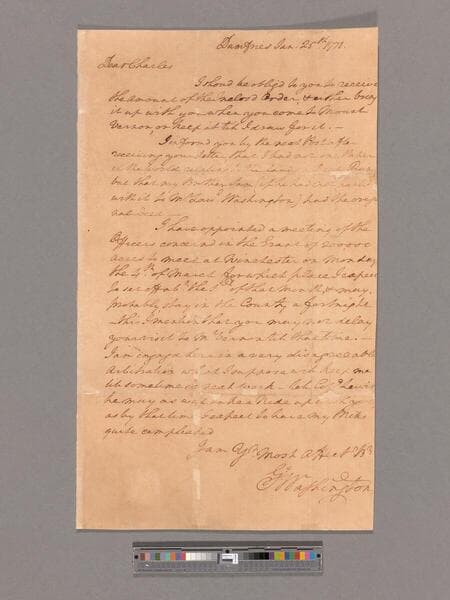 Dumfries Jan. 25th 1771.
Dear Charles
I shoud be oblig'd to you to receive
the amount of the Inclosd Order, & either bring
it up with you when you come to Mount
Vernon or keep it till I draw for it. —
I informd you by the next Post after
receiving your letter that I had not one Paper
in the world relative to the
but that my Brother Sam (if he had not parted
with it to Mr Law: Washington) had the
I have appointed a meeting of the
Officers concernd in the Grant of 200,000
acres to meet at Winchester on Monday
the 4th of March for which place I expect
to set of abt the of that Month & may
probably stay in the County a fortnight
this I mention that you may not delay
your visit to Mt Vernon till that time. —
I am engagd here in a very disagreeable
Arbitration which I suppose will keep me
till sometime in next week — tell Colo Lewis
he may as well take a Ride up with you
as by that time I expect to have my Mill
quite compleated
I am Yr Most Affecte Br
Go Washington